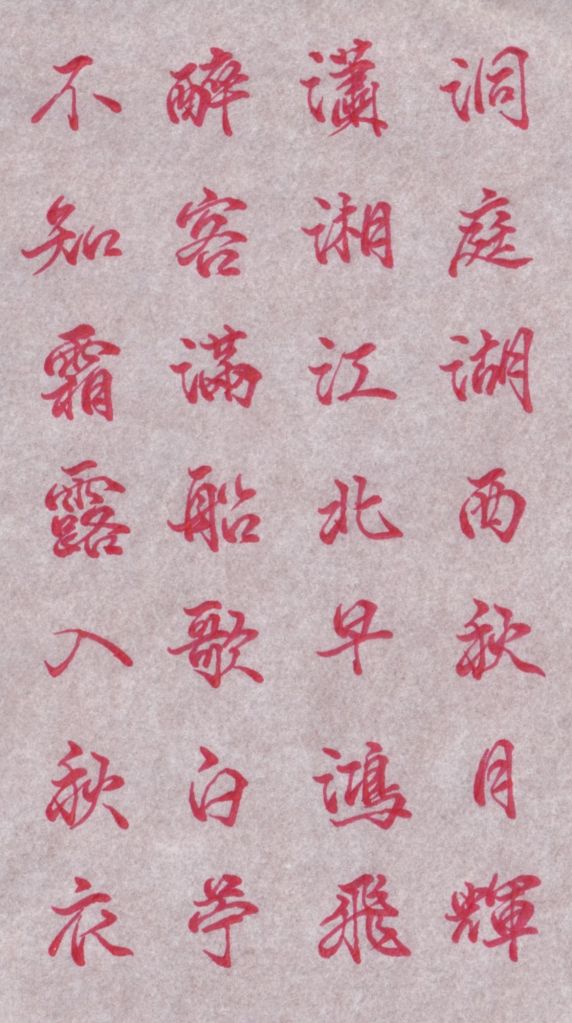 洞庭湖西秋月輝
瀟湘江北早鴻飛
醉客滿船歌白苧
不知霜露入秋衣